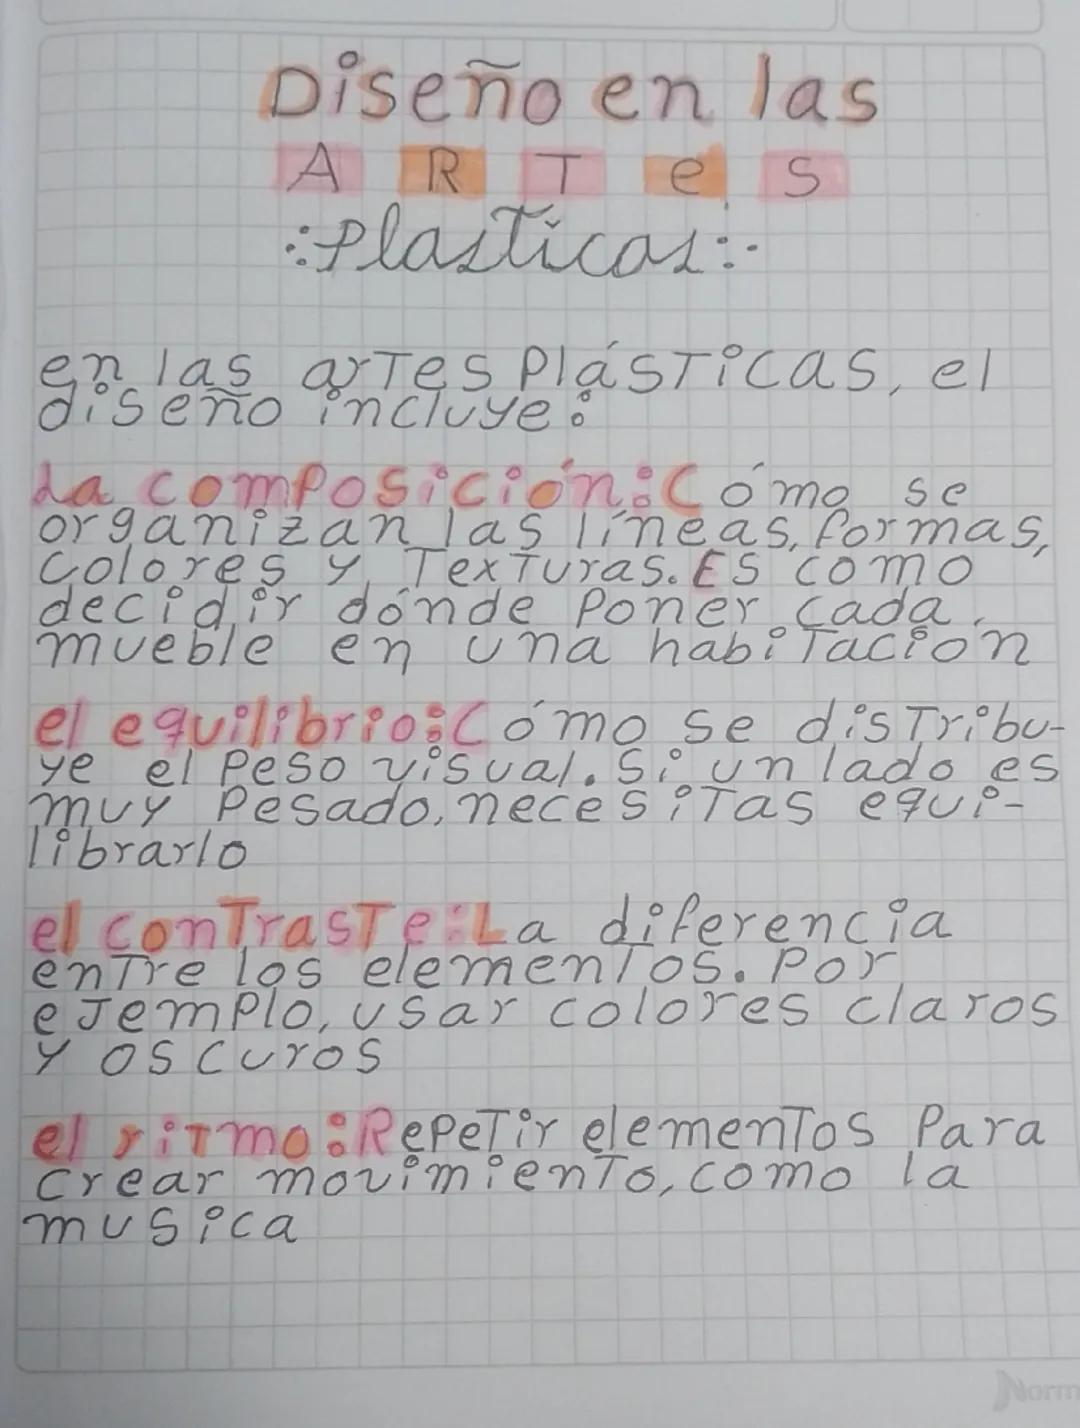 Diseño en las
ARTes
:Plasticas:
en las arTes PlásTicas, el
diseño incluye:
La composición: Cómo se
organizan las líneas, formas,
colores y Texturas. ES como
decidir dónde Poner cada
mueble en una habiTación
el equilibrio: Cómo se disTribu-
ye el Peso visual. Si un lado es
muy Pesado, necesiTas equi-
librarlo
el conTrasTe: La diferencia
enTre los elemenTos. Por
eJemPlo, usar colores claros
y oscuros
el riTmo: RePeTir elemenTos Para
crear movimienTo, como la
musica
Norm